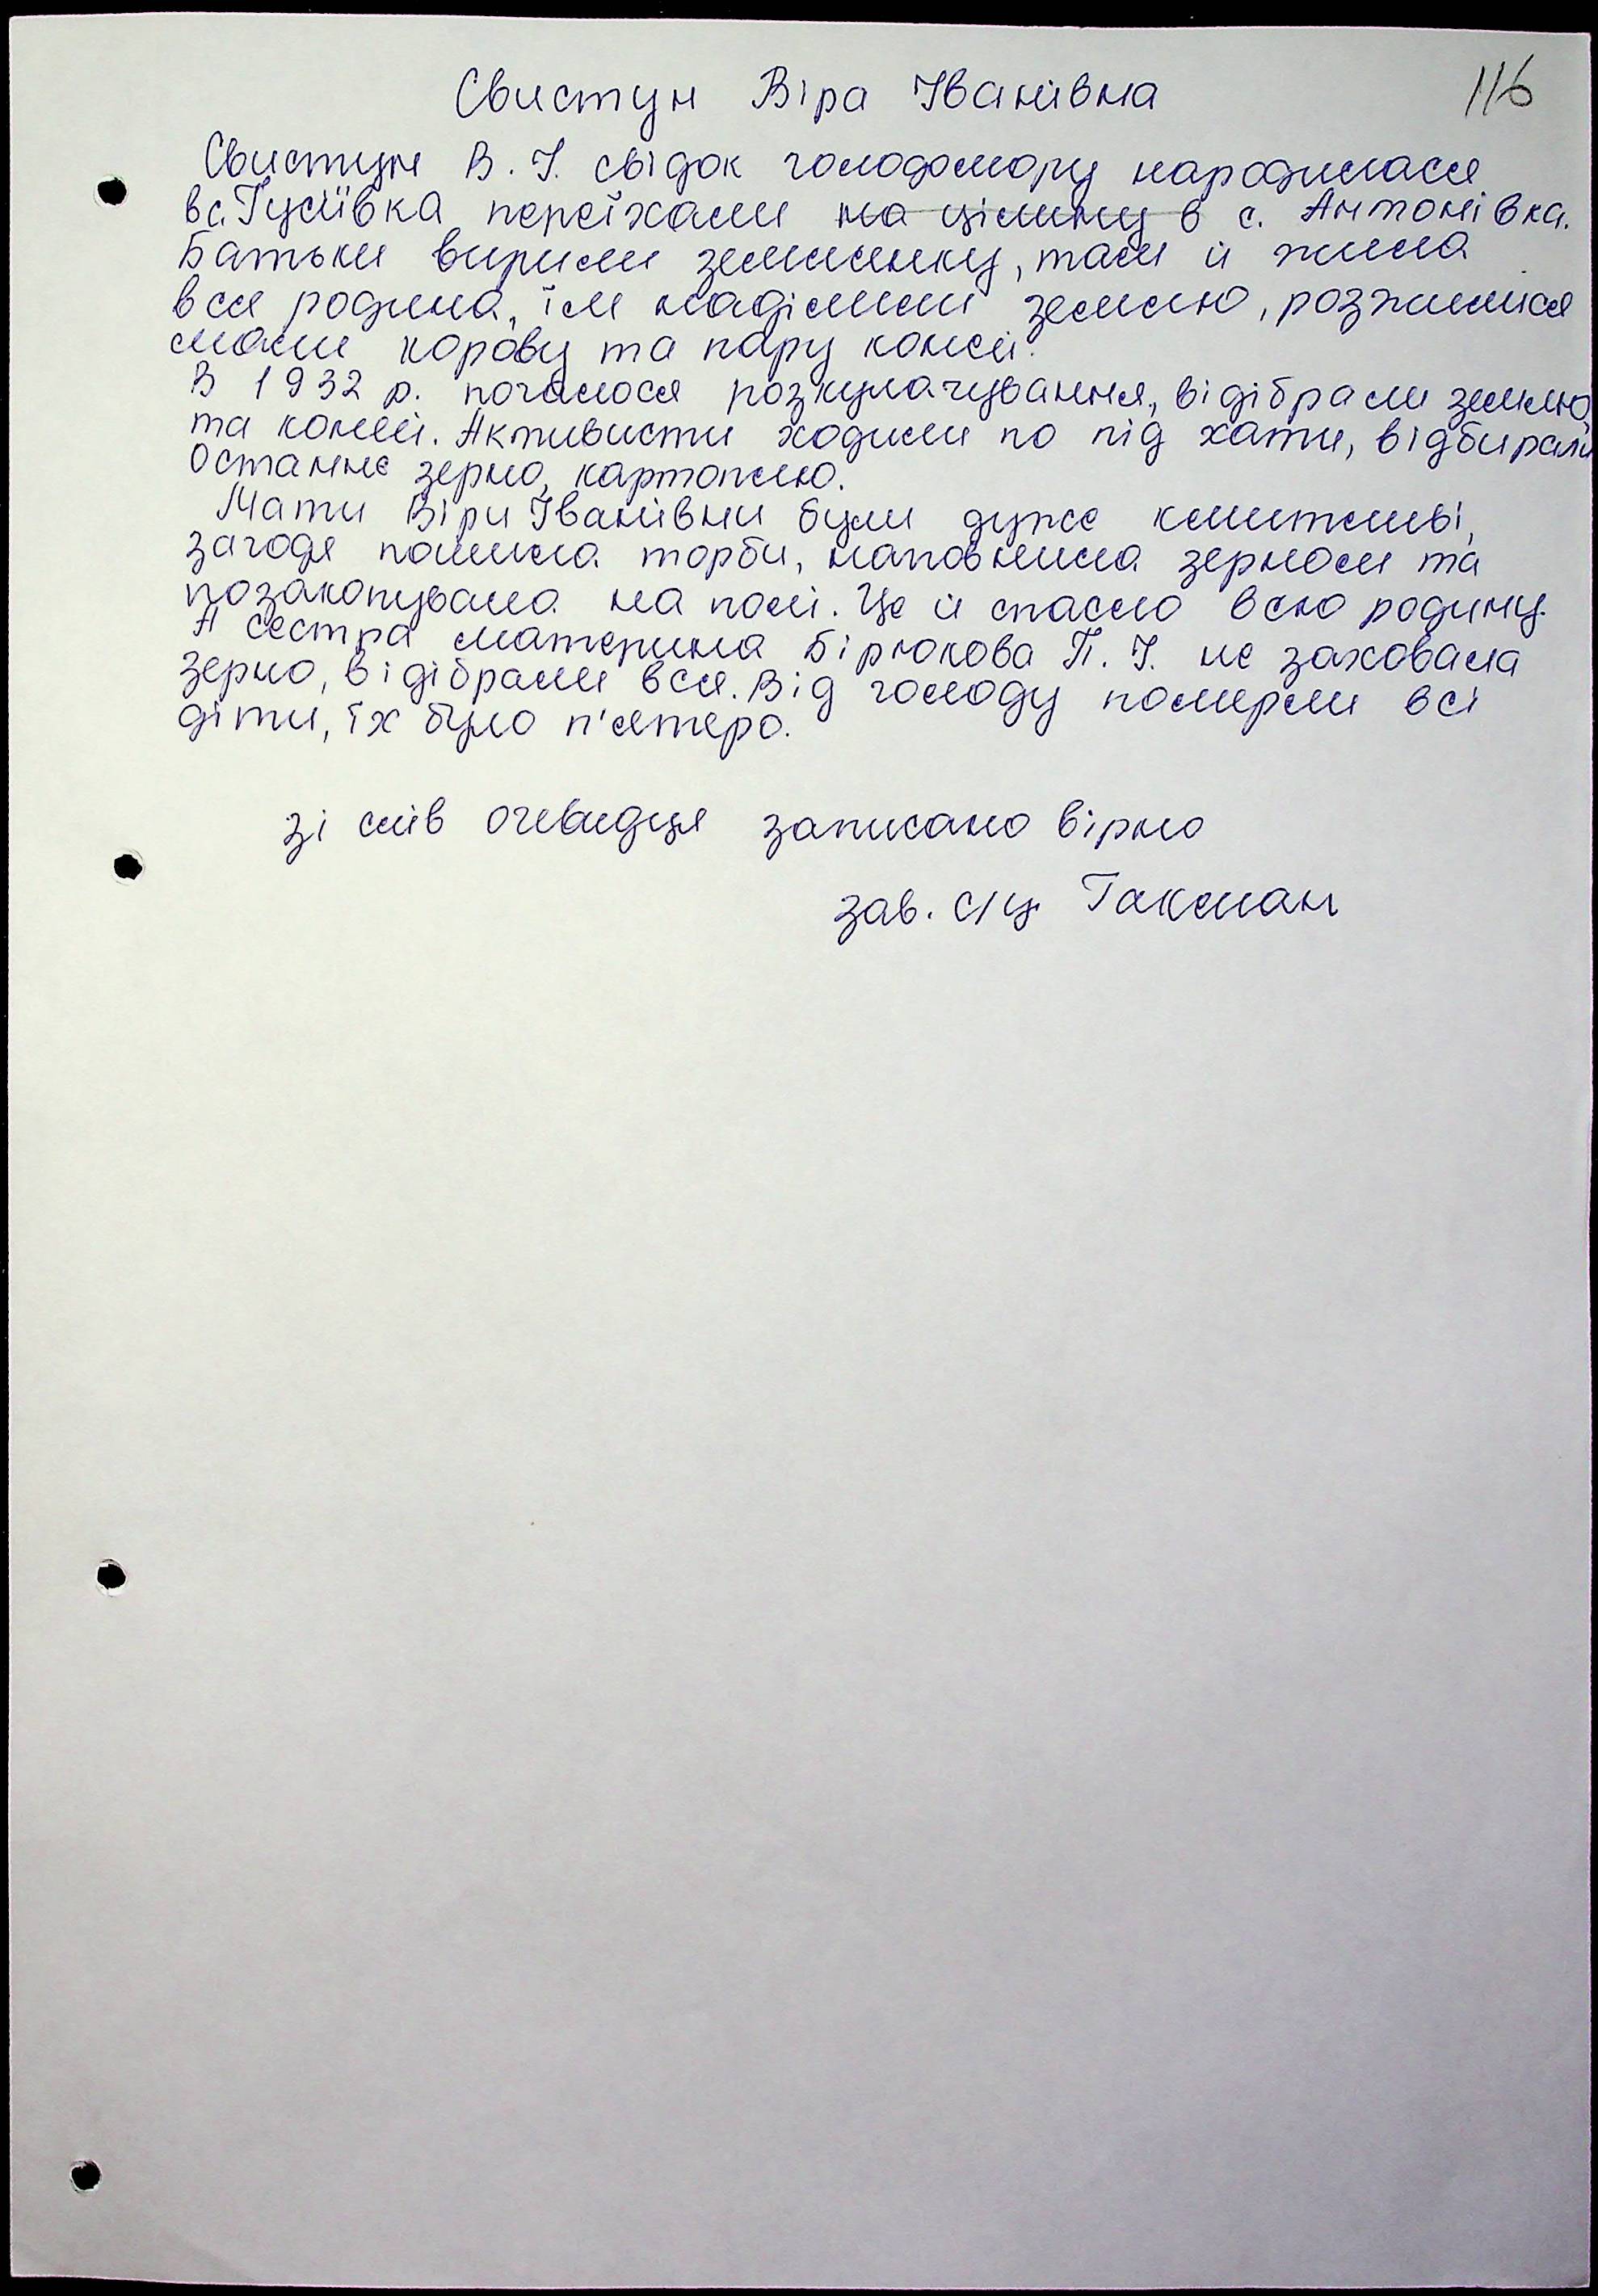 Свистун Віра Іванівна
116
Свистун В. І. свідок голодомору народилася
в с. Гусіївка переїхали на цілину в с. Антонівка.
Батьки вирили землянку, там й жила
вся родина, їм наділили землю, розжилися
мали корову та пару коней.
В 1932 р. почалося розкулачування, відібрали землю
та коней. Активисти ходили по під хати, відбирали
останнє зерно, картоплю.
Мати Віри Іванівни були дуже кмитливі,
загодя пошила торби, наповнила зерном та
позакопувала на полі. Це й спасло всю родину.
А сестра материна Бірюкова П. І. не заховала
зерно, відібрали все. Від голоду померли всі
діти, їх було п'ятеро.
зі слів очевидця записано вірно
зав. с/ц Гакман